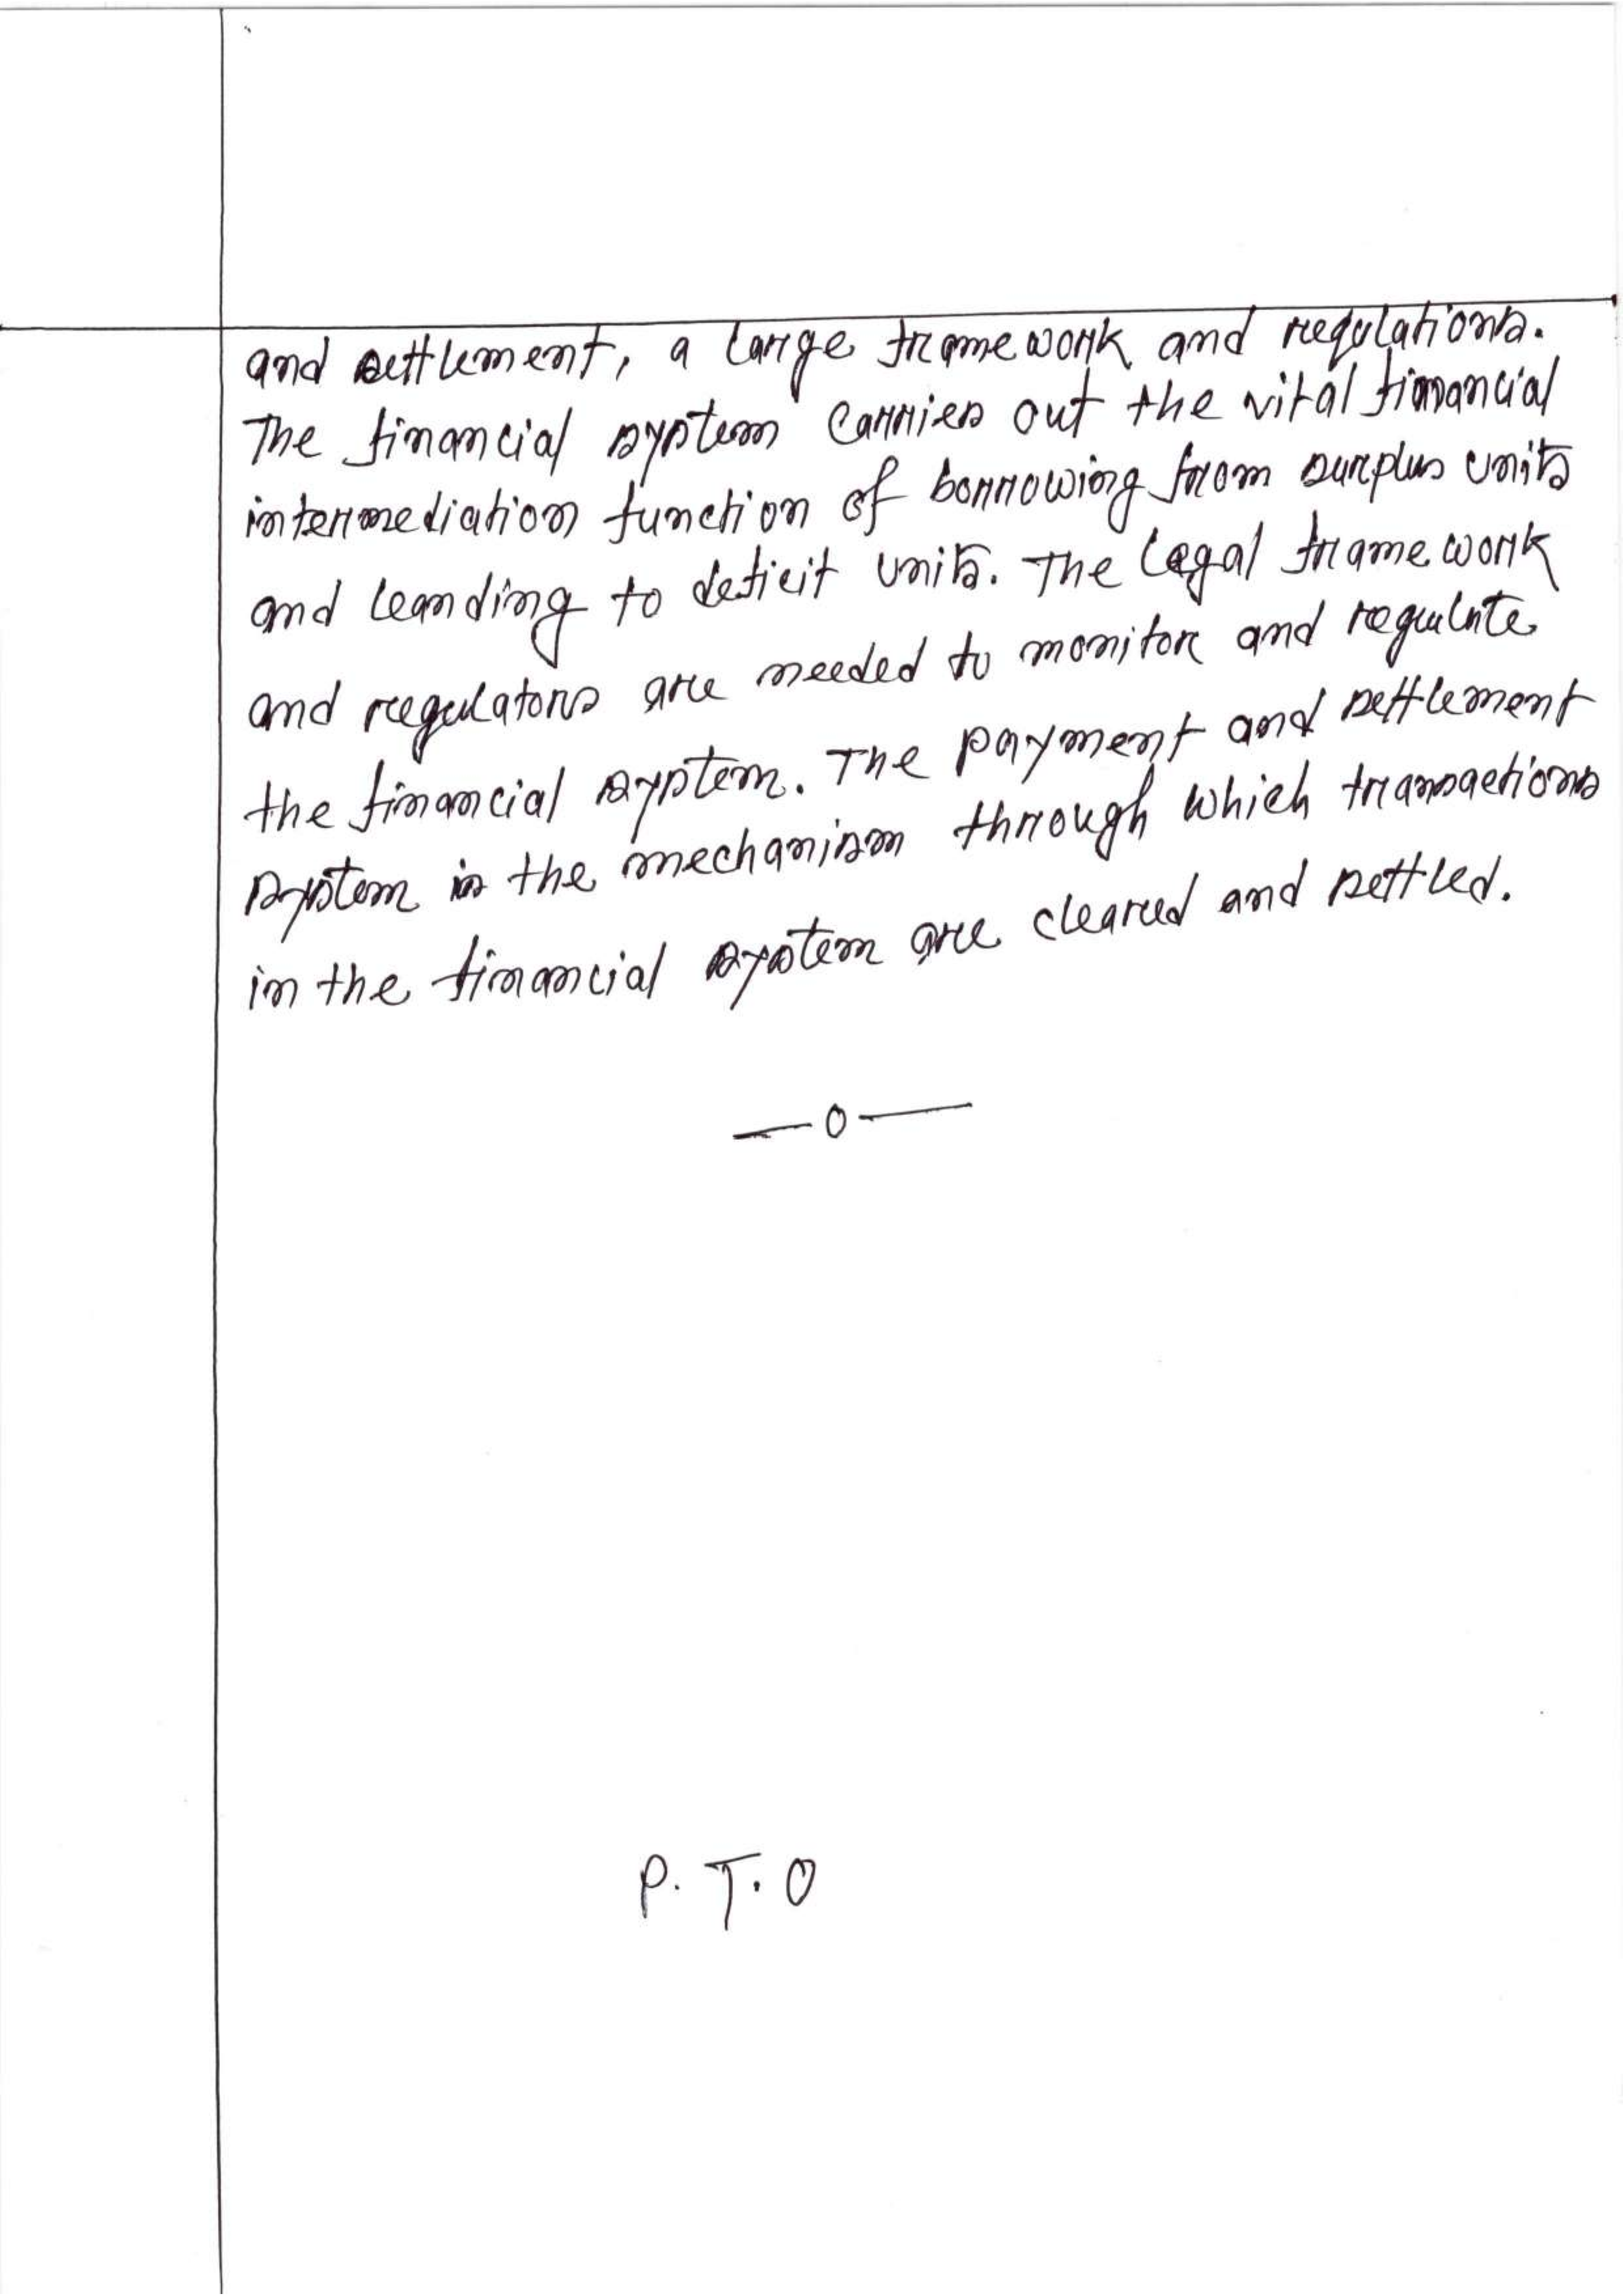 and settlement, a large framework and regulations.
The financial system carries out the vital financial
intermediation function of borrowing from surplus units
and leanding to deficit units. The legal framework
and regulators are needed to monitor and regulate
the financial system. The payment and settlement
system is the mechanism through which transactions
in the financial system are cleared and settled.
— 0 —
P. T. O